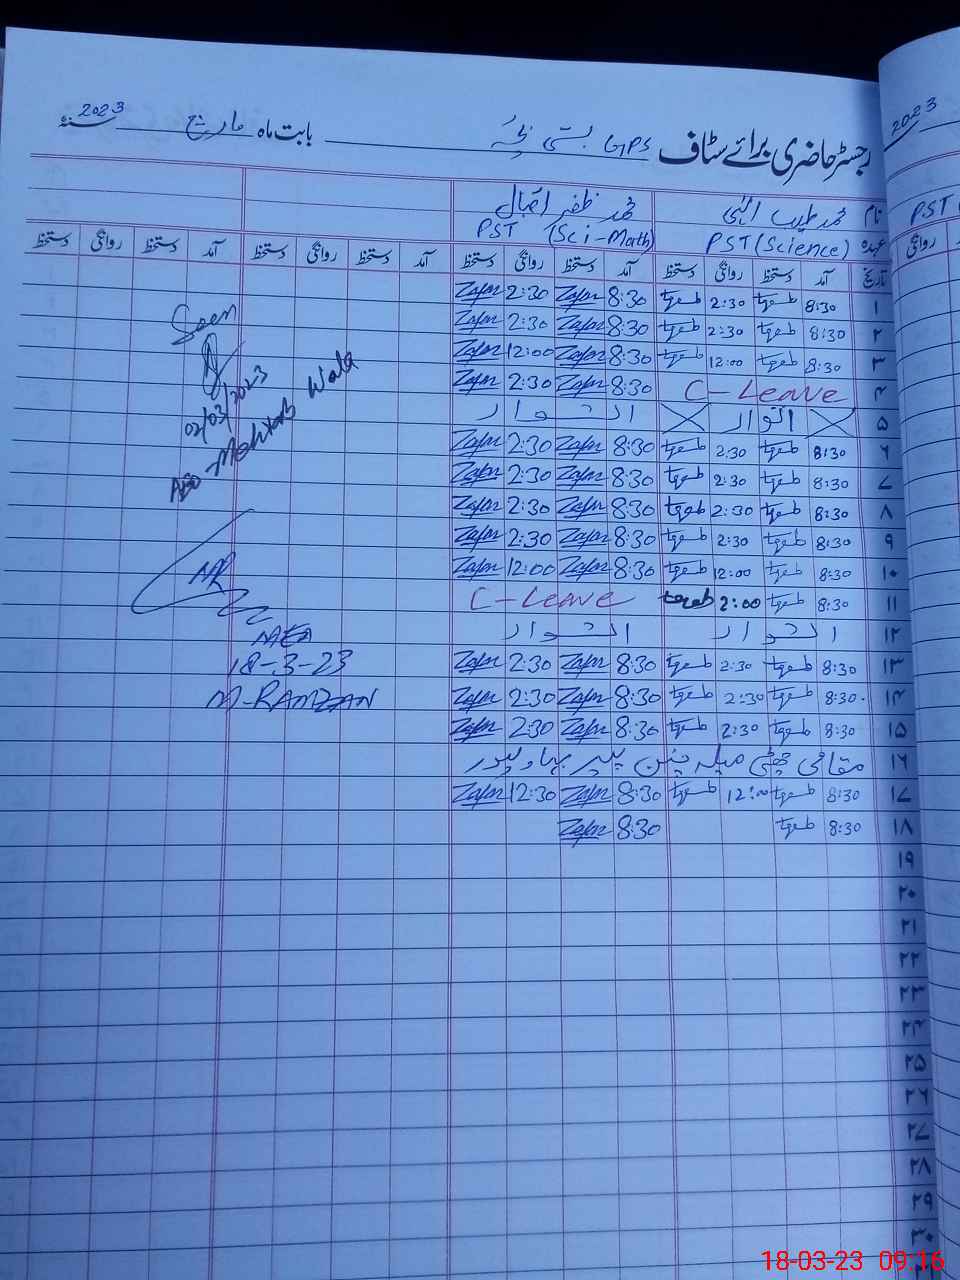 رجسٹر حاضری برائے سٹاف GPS بستی بابت ماہ مارچ 2023
نام محمد طیب الٰہی محمد ظفر اقبال
عہدہ PST (Science) PST (Sci-Math)
تاریخ آمد دستخط روانگی دستخط آمد دستخط روانگی دستخط آمد دستخط روانگی دستخط آمد دستخط روانگی دستخط
۱ 8:30 طیب 2:30 طیب 8:30 Zafar 2:30 Zafar
۲ 8:30 طیب 2:30 طیب 8:30 Zafar 2:30 Zafar
۳ 8:30 طیب 12:00 طیب 8:30 Zafar 12:00 Zafar
۴ C-Leave 8:30 Zafar 2:30 Zafar
۵ اتوار اتوار
۶ 8:30 طیب 2:30 طیب 8:30 Zafar 2:30 Zafar
۷ 8:30 طیب 2:30 طیب 8:30 Zafar 2:30 Zafar
۸ 8:30 طیب 2:30 طیب 8:30 Zafar 2:30 Zafar
۹ 8:30 طیب 2:30 طیب 8:30 Zafar 2:30 Zafar
۱۰ 8:30 طیب 12:00 طیب 8:30 Zafar 12:00 Zafar
۱۱ 8:30 طیب 2:00 طیب C-Leave
۱۲ اتوار اتوار
۱۳ 8:30 طیب 2:30 طیب 8:30 Zafar 2:30 Zafar
۱۴ 8:30 طیب 2:30 طیب 8:30 Zafar 2:30 Zafar
۱۵ 8:30 طیب 2:30 طیب 8:30 Zafar 2:30 Zafar
۱۶ مقامی چھٹی میلہ چنن پیر بہاولپور
۱۷ 8:30 طیب 12:00 طیب 8:30 Zafar 12:30 Zafar
۱۸ 8:30 طیب 8:30 Zafar
۱۹
۲۰
۲۱
۲۲
۲۳
۲۴
۲۵
۲۶
۲۷
۲۸
۲۹
۳۰
Seen
02/03/2023
Mehtab Wala
MR
18-3-23
M-RAMZAN
2023
PST
روانگی دستخط
18-03-23 09:16